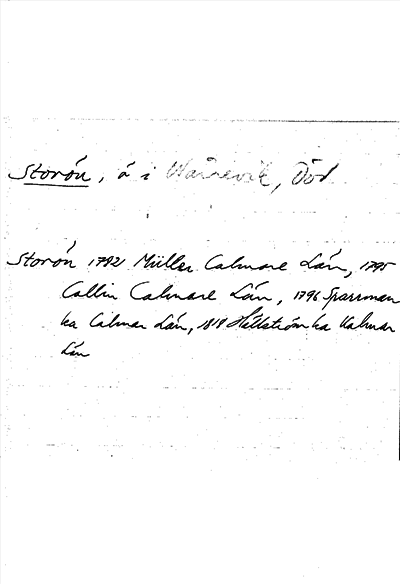 Storån, å i Warnevik, Död
Storån 1792 Müller Calmare Län, 1795
Callin Calmare Län, 1796 Sparrman
ka Calmar Län, 1818 Hällström ka Kalmar
Län